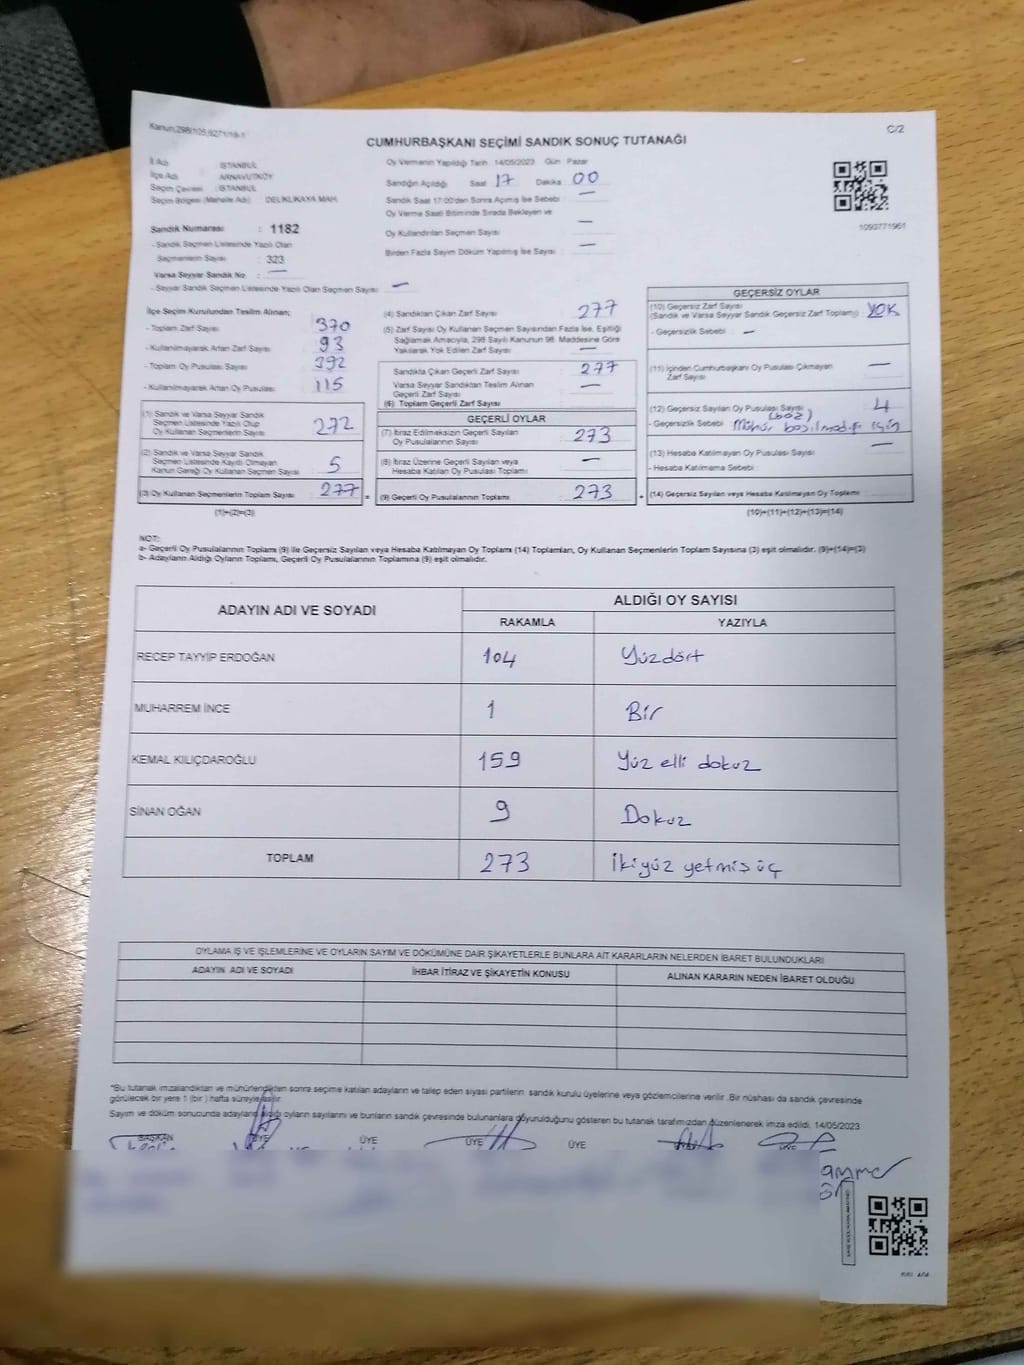 Kanun:298/105,6271/19-1
C/2
CUMHURBAŞKANI SEÇİMİ SANDIK SONUÇ TUTANAĞI
İl Adı : İSTANBUL
İlçe Adı : ARNAVUTKÖY
Seçim Çevresi : İSTANBUL
Seçim Bölgesi (Mahalle Adı) : DELİKLİKAYA MAH.
Sandık Numarası : 1182
- Sandık Seçmen Listesinde Yazılı Olan
Seçmenlerin Sayısı : 323
Varsa Seyyar Sandık No : —
- Seyyar Sandık Seçmen Listesinde Yazılı Olan Seçmen Sayısı : —
Oy Vermenin Yapıldığı Tarih : 14/05/2023 Gün : Pazar
Sandığın Açıldığı Saat 17 Dakika 00
Sandık Saat 17:00'den Sonra Açılmış İse Sebebi : —
Oy Verme Saati Bitiminde Sırada Bekleyen ve
Oy Kullandırılan Seçmen Sayısı : —
Birden Fazla Sayım Döküm Yapılmış İse Sayısı : —
1090771961
İlçe Seçim Kurulundan Teslim Alınan;
- Toplam Zarf Sayısı : 370
- Kullanılmayarak Artan Zarf Sayısı : 93
- Toplam Oy Pusulası Sayısı : 392
- Kullanılmayarak Artan Oy Pusulası : 115
(1) Sandık ve Varsa Seyyar Sandık
Seçmen Listesinde Yazılı Olup
Oy Kullanan Seçmenlerin Sayısı : 272
(2) Sandık ve Varsa Seyyar Sandık
Seçmen Listesinde Kayıtlı Olmayan
Kanun Gereği Oy Kullanan Seçmen Sayısı : 5
(3) Oy Kullanan Seçmenlerin Toplam Sayısı : 277 =
(1)+(2)=(3)
(4) Sandıktan Çıkan Zarf Sayısı : 277
(5) Zarf Sayısı Oy Kullanan Seçmen Sayısından Fazla İse, Eşitliği
Sağlamak Amacıyla, 298 Sayılı Kanunun 98. Maddesine Göre
Yakılarak Yok Edilen Zarf Sayısı : —
Sandıkta Çıkan Geçerli Zarf Sayısı : 277
Varsa Seyyar Sandıktan Teslim Alınan
Geçerli Zarf Sayısı : —
(6) Toplam Geçerli Zarf Sayısı :
GEÇERLİ OYLAR
(7) İtiraz Edilmeksizin Geçerli Sayılan
Oy Pusulalarının Sayısı : 273
(8) İtiraz Üzerine Geçerli Sayılan veya
Hesaba Katılan Oy Pusulası Toplamı : —
(9) Geçerli Oy Pusulalarının Toplamı : 273 +
GEÇERSİZ OYLAR
(10) Geçersiz Zarf Sayısı
(Sandık ve Varsa Seyyar Sandık Geçersiz Zarf Toplamı) : YOK
- Geçersizlik Sebebi : —
(11) İçinden Cumhurbaşkanı Oy Pusulası Çıkmayan
Zarf Sayısı : —
(12) Geçersiz Sayılan Oy Pusulası Sayısı : 4
(boz)
- Geçersizlik Sebebi : Mühür basılmadığı için
(13) Hesaba Katılmayan Oy Pusulası Sayısı : —
- Hesaba Katılmama Sebebi :
(14) Geçersiz Sayılan veya Hesaba Katılmayan Oy Toplamı :
(10)+(11)+(12)+(13)=(14)
NOT:
a- Geçerli Oy Pusulalarının Toplamı (9) ile Geçersiz Sayılan veya Hesaba Katılmayan Oy Toplamı (14) Toplamları, Oy Kullanan Seçmenlerin Toplam Sayısına (3) eşit olmalıdır. (9)+(14)=(3)
b- Adayların Aldığı Oyların Toplamı, Geçerli Oy Pusulalarının Toplamına (9) eşit olmalıdır.
ADAYIN ADI VE SOYADI
ALDIĞI OY SAYISI
RAKAMLA YAZIYLA
RECEP TAYYİP ERDOĞAN 104 Yüzdört
MUHARREM İNCE 1 Bir
KEMAL KILIÇDAROĞLU 159 Yüz elli dokuz
SİNAN OĞAN 9 Dokuz
TOPLAM 273 İkiyüz yetmiş üç
OYLAMA İŞ VE İŞLEMLERİNE VE OYLARIN SAYIM VE DÖKÜMÜNE DAİR ŞİKAYETLERLE BUNLARA AİT KARARLARIN NELERDEN İBARET BULUNDUKLARI
ADAYIN ADI VE SOYADI İHBAR İTİRAZ VE ŞİKAYETİN KONUSU ALINAN KARARIN NEDEN İBARET OLDUĞU
*Bu tutanak imzalandıktan ve mühürlendikten sonra seçime katılan adayların ve talep eden siyasi partilerin sandık kurulu üyelerine veya gözlemcilerine verilir. Bir nüshası da sandık çevresinde
görülecek bir yere 1 (bir) hafta süreyle asılır.
Sayım ve döküm sonucunda adayların aldığı oyların sayılarını ve bunların sandık çevresinde bulunanlara duyurulduğunu gösteren bu tutanak tarafımızdan düzenlenerek imza edildi. 14/05/2023
BAŞKAN ÜYE ÜYE ÜYE ÜYE ÜYE